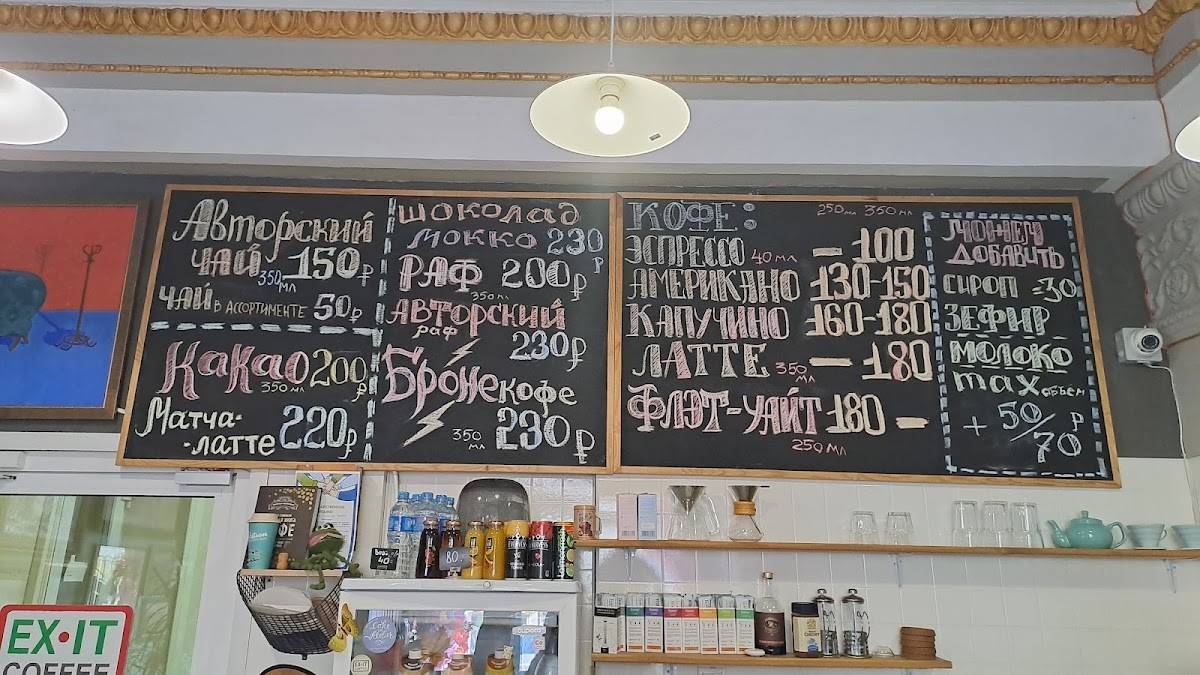 Авторский
чай
350мл 150₽
чай в ассортименте 50₽
Какао 200₽
350мл
Матча-
-латте 220₽
шоколад
мокко 230₽
Раф 200₽
350мл
Авторский
раф 230₽
Бронекофе
350мл 230₽
Кофе: 250мл 350мл
Эспрессо 40мл – 100
Американо 130-150
Капучино 160-180
Латте 350мл – 180
Флэт-уайт 180 –
250мл
можем
добавить
сироп -30
зефир
молоко
max объём
+ 50/70 ₽
40
80
EX·IT
COFFEE
EX·IT